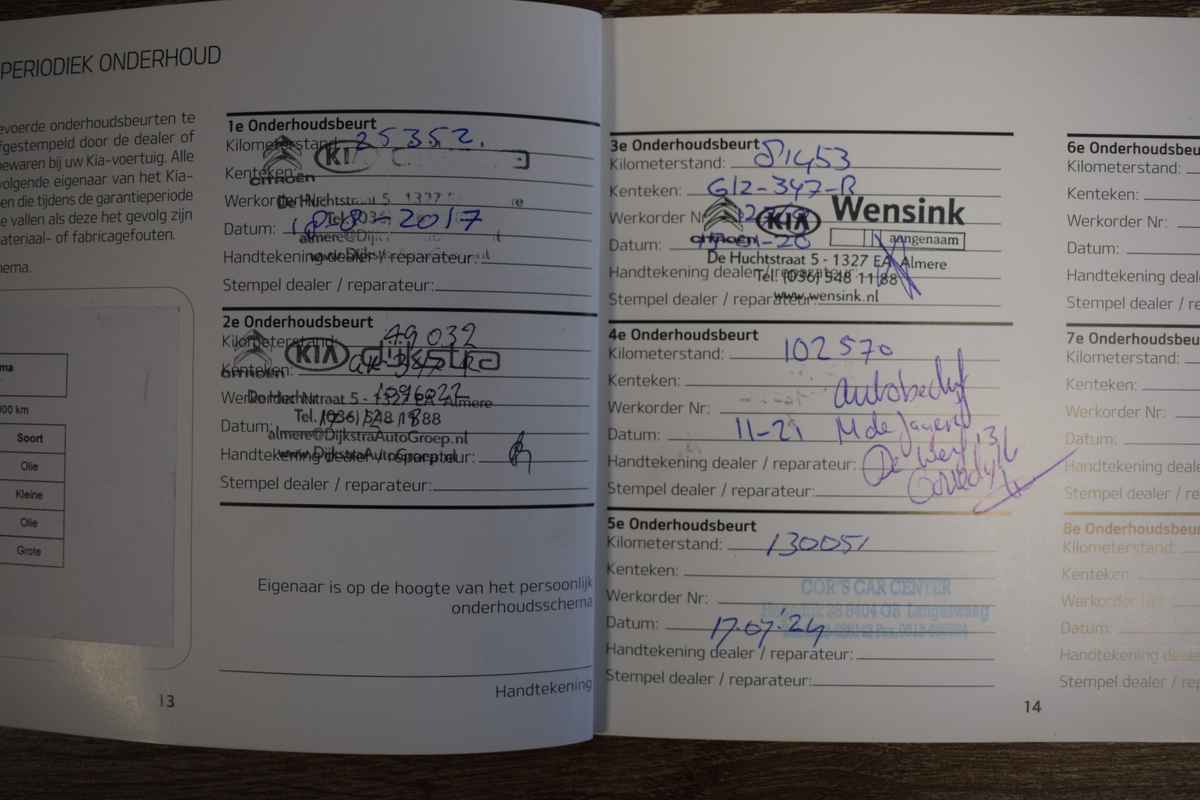 PERIODIEK ONDERHOUD
evoerde onderhoudsbeurten te
fgestempeld door de dealer of
bewaren bij uw Kia-voertuig. Alle
volgende eigenaar van het Kia-
en die tijdens de garantieperiode
e vallen als deze het gevolg zijn
ateriaal- of fabricagefouten.
nema.
ma
000 km
Soort
Olie
Kleine
Olie
Grote
1e Onderhoudsbeurt
Kilometerstand: 25352.
Kenteken:
CITROËN KIA
Werkorder Nr:
De Huchtstraat 5 - 1327
Datum: 18-8-2017
Handtekening dealer / reparateur:
Stempel dealer / reparateur:
2e Onderhoudsbeurt
Kilometerstand: 49032
CITROËN KIA dijkstra
Kenteken:
Werkorder Nr: 1896022
De Huchtstraat 5 - 1327 EA Almere
Tel. (036) 548 11 88
Datum:
almere@DijkstraAutoGroep.nl
www.DijkstraAutoGroep.nl
Handtekening dealer / reparateur:
Stempel dealer / reparateur:
Eigenaar is op de hoogte van het persoonlijk
onderhoudsschema
Handtekening
13
3e Onderhoudsbeurt
Kilometerstand: 81453
Kenteken: GK-347-R
Werkorder Nr:
CITROËN KIA Wensink
aangenaam
Datum:
De Huchtstraat 5 - 1327 EA Almere
Handtekening dealer / reparateur:
Tel. (036) 548 11 88
www.wensink.nl
Stempel dealer / reparateur:
4e Onderhoudsbeurt
Kilometerstand: 102570
Kenteken: autobedrijf
Werkorder Nr:
Datum: 11-21 M de Jager
Handtekening dealer / reparateur:
Stempel dealer / reparateur:
5e Onderhoudsbeurt
Kilometerstand: 130051
Kenteken:
COR'S CAR CENTER
Werkorder Nr:
8404 GB Langezwaag
Datum: 17.07.'24
Handtekening dealer / reparateur:
Stempel dealer / reparateur:
14
6e Onderhoudsbeu
Kilometerstand:
Kenteken:
Werkorder Nr:
Datum:
Handtekening deale
Stempel dealer / rep
7e Onderhoudsbeu
Kilometerstand:
Kenteken:
Werkorder Nr:
Datum:
Handtekening dealer
Stempel dealer / rep
8e Onderhoudsbeur
Kilometerstand:
Kenteken:
Werkorder Nr:
Datum:
Handtekening dealer
Stempel dealer / rep